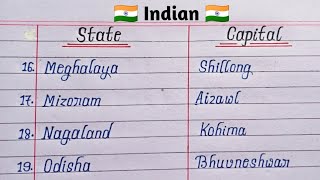 🇮🇳 Indian 🇮🇳
State Capital
16. Meghalaya Shillong
17. Mizoram Aizawl
18. Nagaland Kohima
19. Odisha Bhuvneshwar